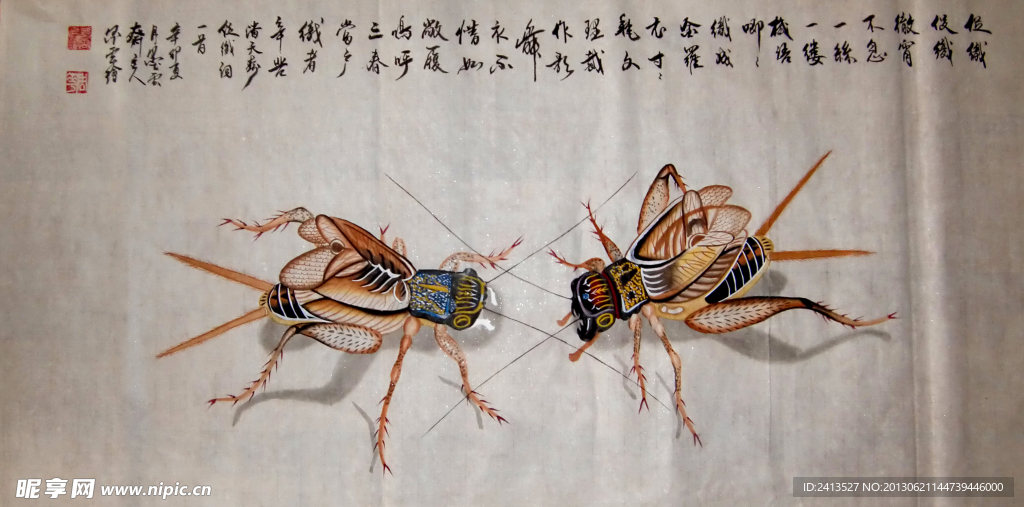 促織
促織
徹宵
不息
一絲
一縷
機语
唧〻
織成
羅
寸〻
龍文
裁
作彩
舞
衣不
惜如
敝屣
嗚呼
三春
當户
織者
辛苦
潘天夀
促織詞
一首
辛卯夏
月墨雲
齋主人
繪
昵享网 www.nipic.cn
ID:2413527 NO:20130621144739446000